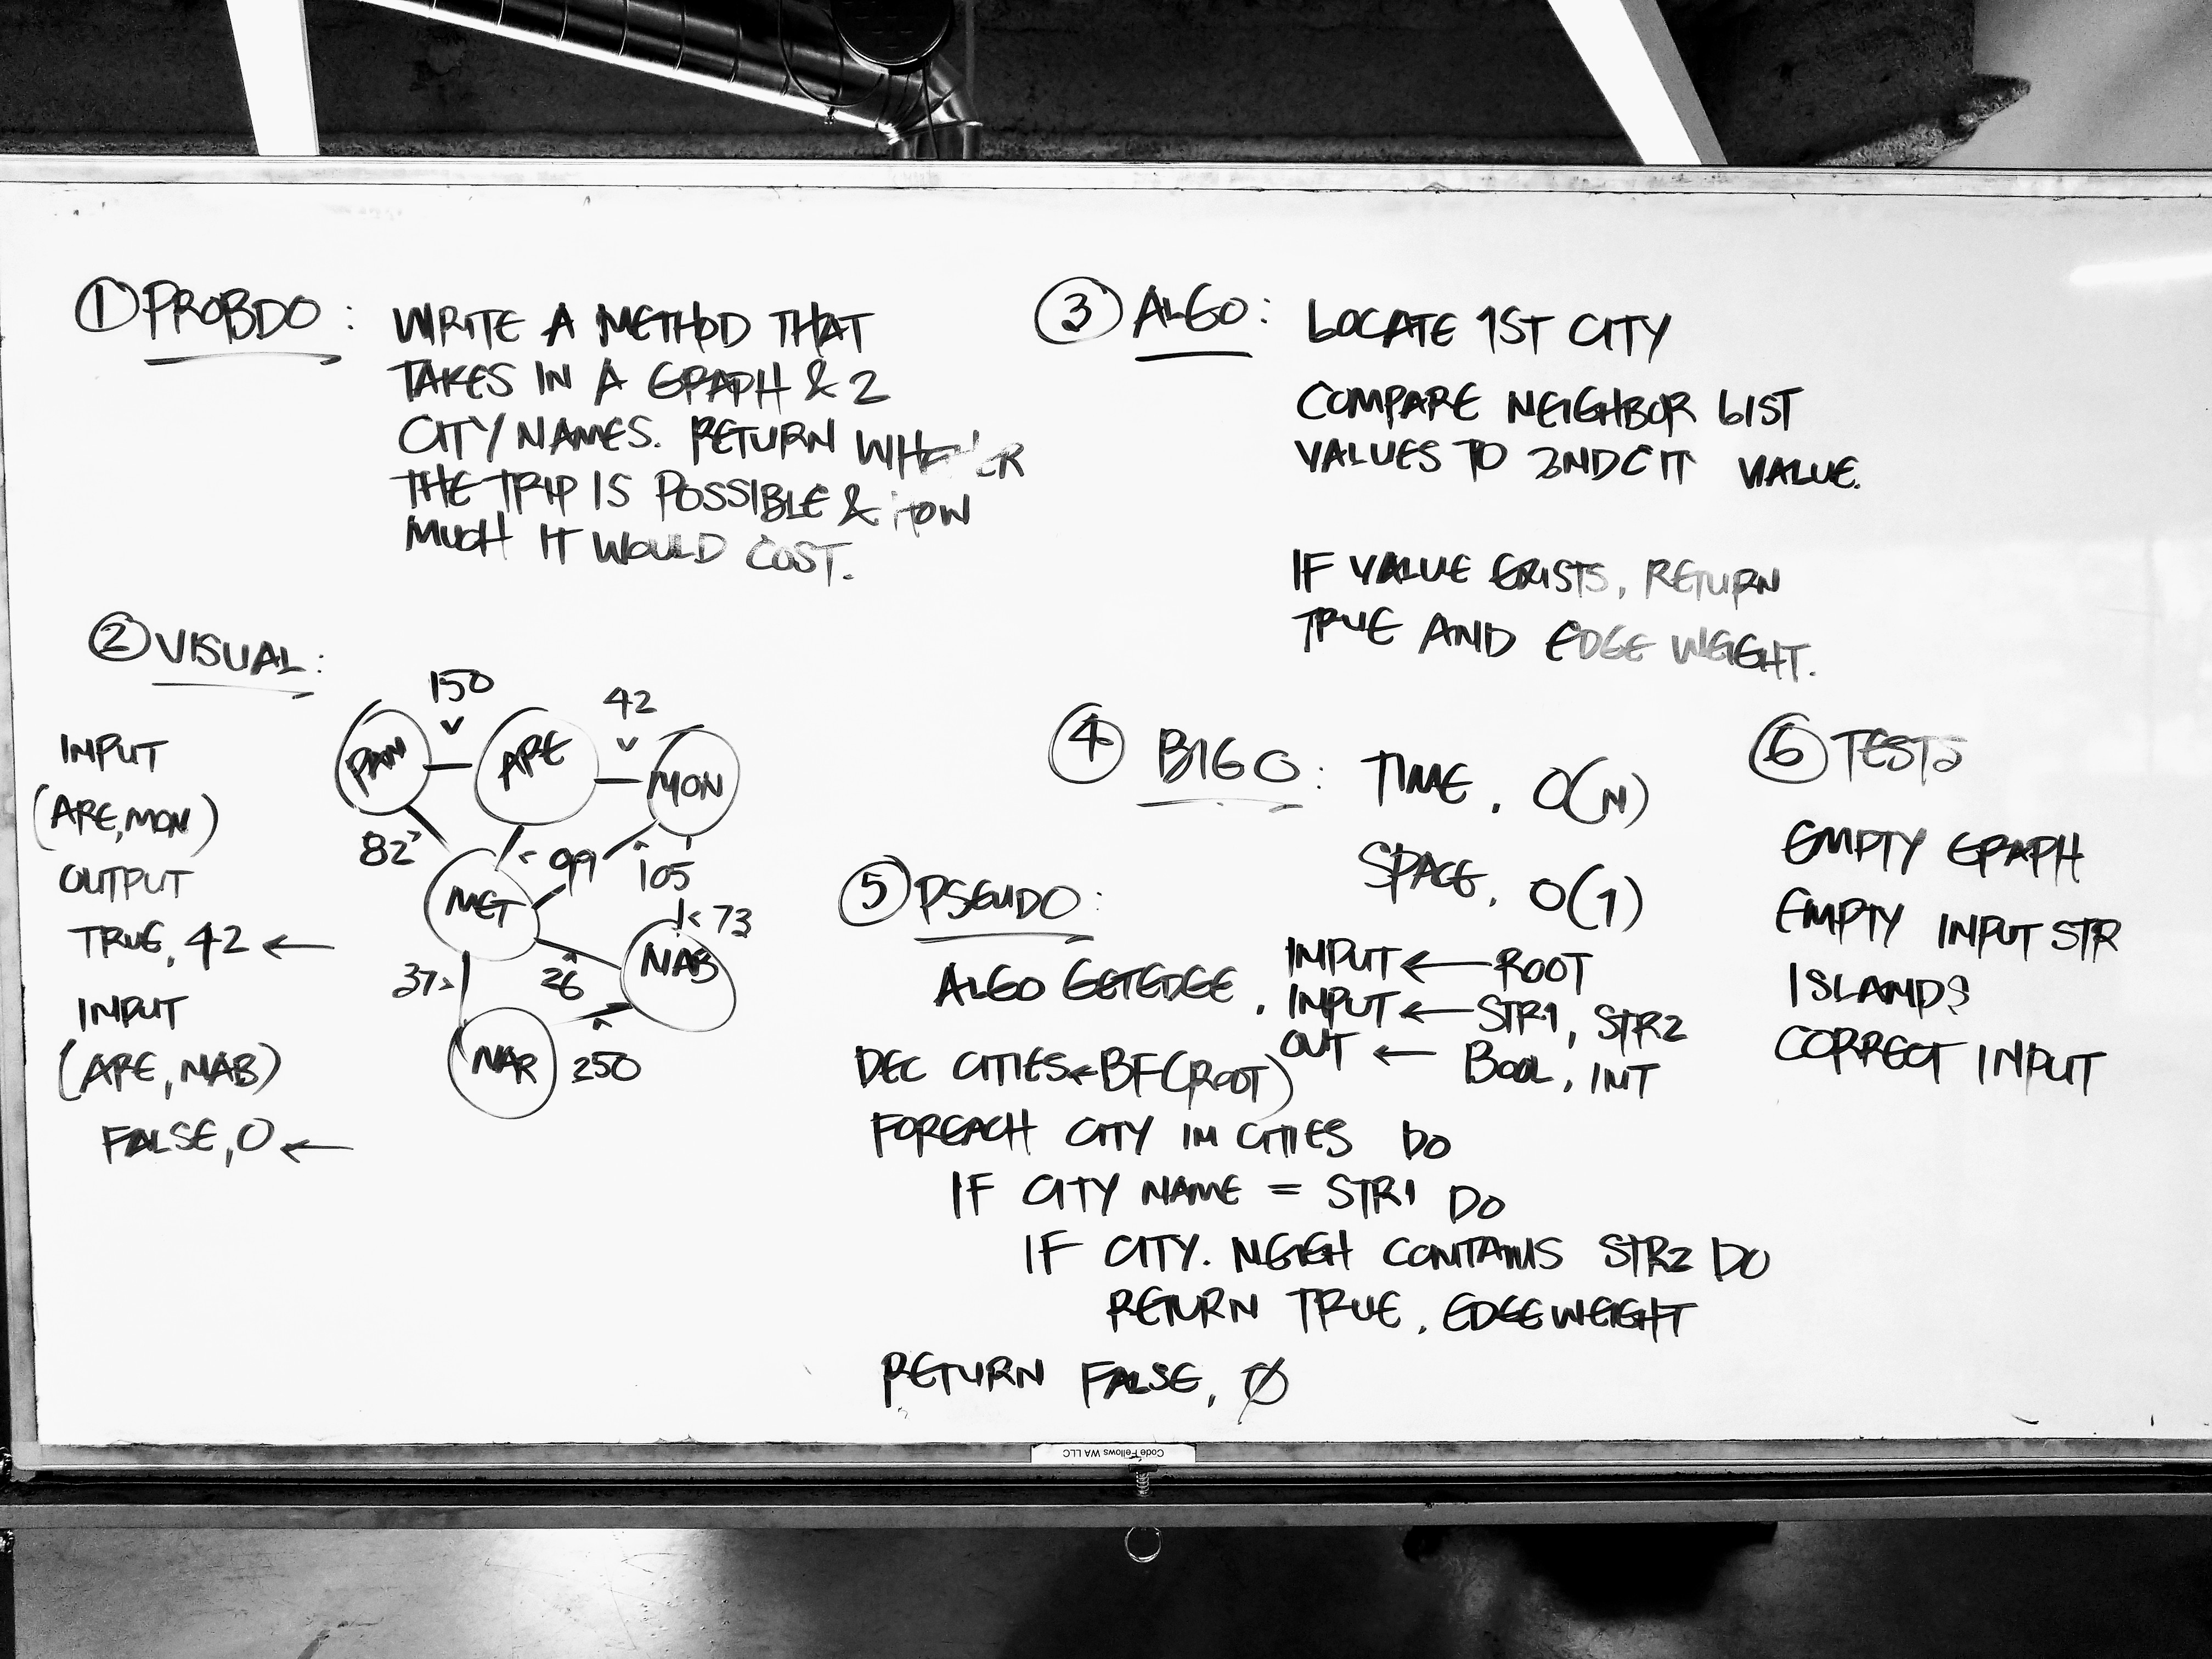 ① PROBDO:
WRITE A METHOD THAT
TAKES IN A GRAPH & 2
CITY NAMES. RETURN WHETHER
THE TRIP IS POSSIBLE & HOW
MUCH IT WOULD COST.
② VISUAL:
INPUT
(ARE, MON)
OUTPUT
TRUE, 42 ←
INPUT
(ARE, NAB)
FALSE, 0 ←
150
42
PAN
ARE
MON
82
99
105
MET
73
NAB
37
26
NAR
250
③ ALGO:
LOCATE 1ST CITY
COMPARE NEIGHBOR LIST
VALUES TO 2NDCIT VALUE.
IF VALUE EXISTS, RETURN
TRUE AND EDGE WEIGHT.
④ BIGO:
TIME, O(N)
SPACE, O(1)
⑤ PSEUDO:
ALGO GETEDGE,
INPUT ← ROOT
INPUT ← STR1, STR2
OUT ← BOOL, INT
DEC CITIES ← BF(ROOT)
FOREACH CITY IN CITIES DO
IF CITY NAME = STR1 DO
IF CITY. NEIGH CONTAINS STR2 DO
RETURN TRUE, EDGEWEIGHT
RETURN FALSE, Ø
⑥ TESTS
EMPTY GRAPH
EMPTY INPUT STR
ISLANDS
CORRECT INPUT
Code Fellows WA LLC